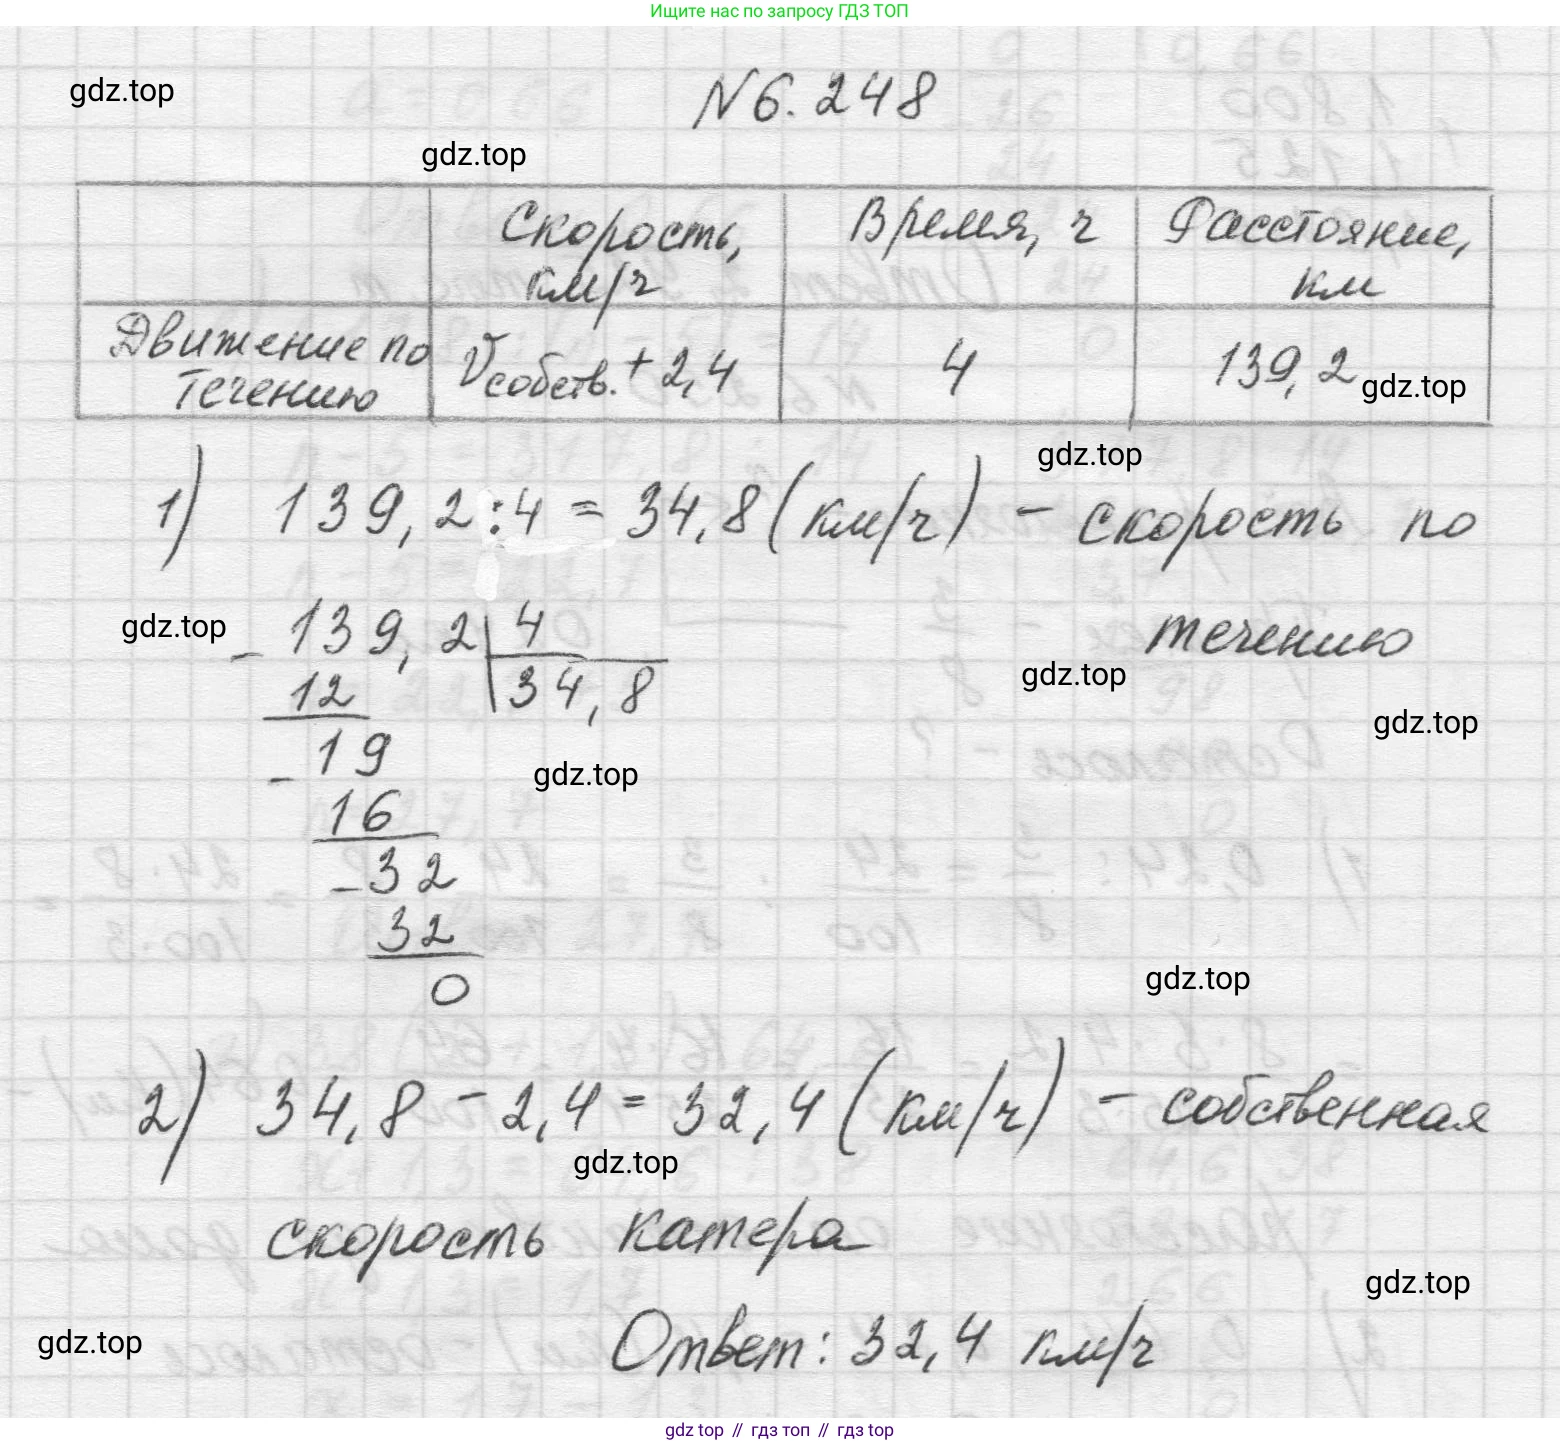 Ищите нас по запросу ГДЗ ТОП
gdz.top
N 6.248
gdz.top
Скорость, км/ч
Время, ч
Расстояние, км
Движение по течению
Vсобств. + 2,4
4
139,2
gdz.top
gdz.top
1) 139,2 : 4 = 34,8 (км/ч) - скорость по
течению
gdz.top
- 139,2 | 4
12 34,8
gdz.top
gdz.top
- 19
gdz.top
16
- 32
32
0
gdz.top
2) 34,8 - 2,4 = 32,4 (км/ч) - собственная
gdz.top
скорость катера
gdz.top
gdz.top
Ответ: 32,4 км/ч
gdz.top // гдз топ // гдз top